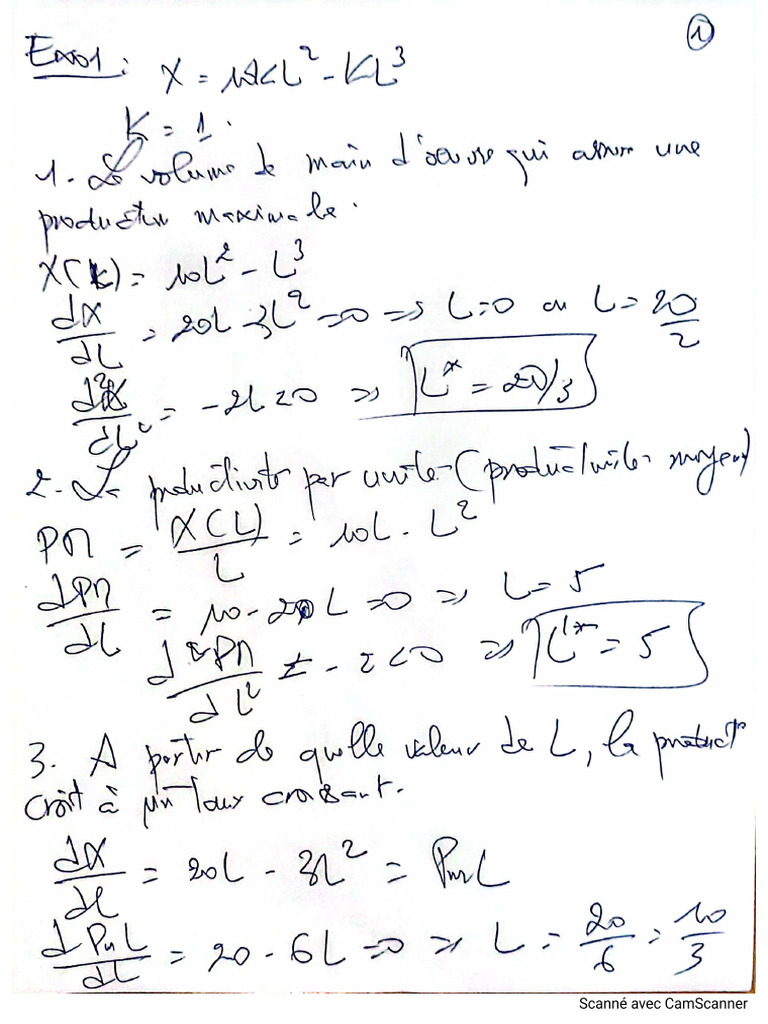 ①
Exo1: X = 10KL² - KL³
K = 1.
1. Le volume de main d'oeuvre qui assure une
production maximale.
X(L) = 10L² - L³
dX/dL = 20L - 3L² = 0 => L=0 ou L = 20/2
d²X/dL² = -2L<0 => L* = 20/3
2. La productivité par unité (productivité moyen)
PM = X(L)/L = 10L - L²
dPM/dL = 10 - 2L = 0 => L = 5
d²PM/dL² = -2<0 => L* = 5
3. A partir de quelle valeur de L, la product°
croit à un taux croissant.
dX/dL = 20L - 3L² = PmL
dPmL/dL = 20 - 6L = 0 => L = 20/6 = 10/3
Scanné avec CamScanner